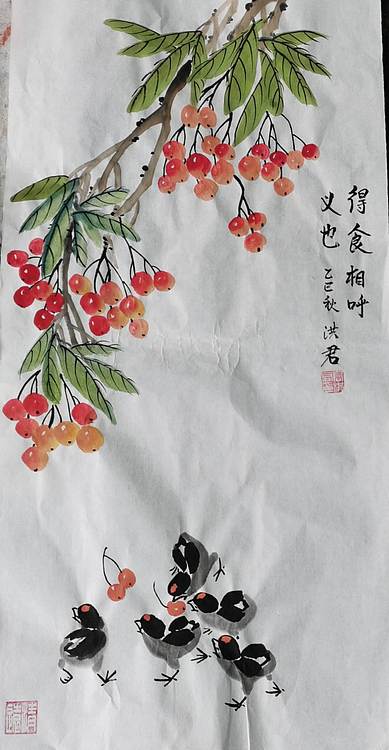 得食相呼
义也
乙巳秋 洪君